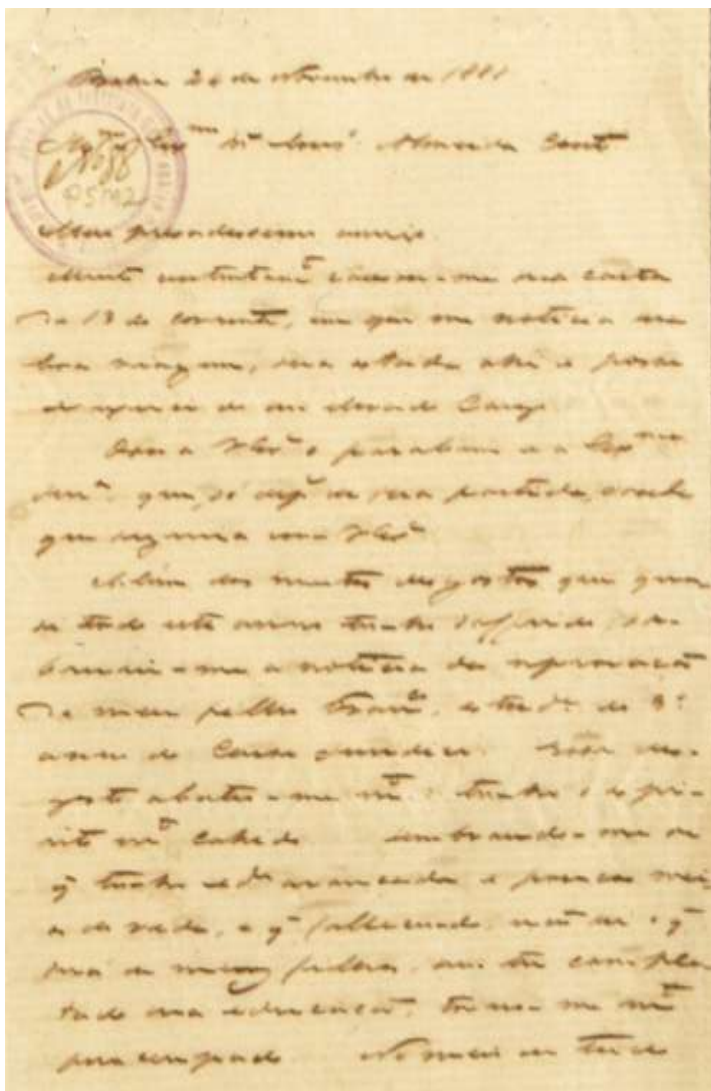 Bahia 26 de Novembro de 1881
Almeida
Meu presadissimo amigo
sua carta
de 13 do corrente, em que me noticia sua
boa viagem, sua estada ahi e posse
e exercicio de seu elevado Cargo
Dou a VExª os parabens e a Exma
que, só depˢ de sua partida, soube
que seguira com VExª
Além dos muitos desgostos que qua-
si todo este anno tenho soffrido, 
me a noticia da reprovação
de meu filho Franᶜᵒ, estudᵉ do 3º
anno do Curso juridico. Esse des-
gosto abateu-me mᵗᵒ: tenho o espi-
rito mᵗᵒ cahido. Lembrando-me de
q̃ tenho idᵉ avançada e poucos mei-
os de vida, e q̃ fallecendo, não sei o q̃
será de meus filhos, sem ter comple-
tado sua educação, torno-me mᵗᵒ
preoccupado. No meio de tudo